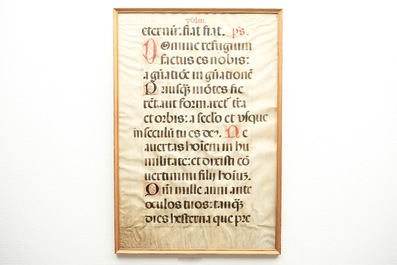 psalm.
eternū: fiat fiat. ps.
Domine refugium
factus es nobis:
a gn̄atiōe in gn̄ationē
Priusq̄ mōtes fie
rēt. aut formaret̄ tr̄a
et orbis: a secl̄o et usque
in seculū tu es deꝰ. Ne
auertas hoīem in hu
militate: et dixisti cō
uertimini filij hoīuꝫ.
Qm̄ mille anni ante
oculos tuos: tanq̄ꝫ
dies hesterna que pre